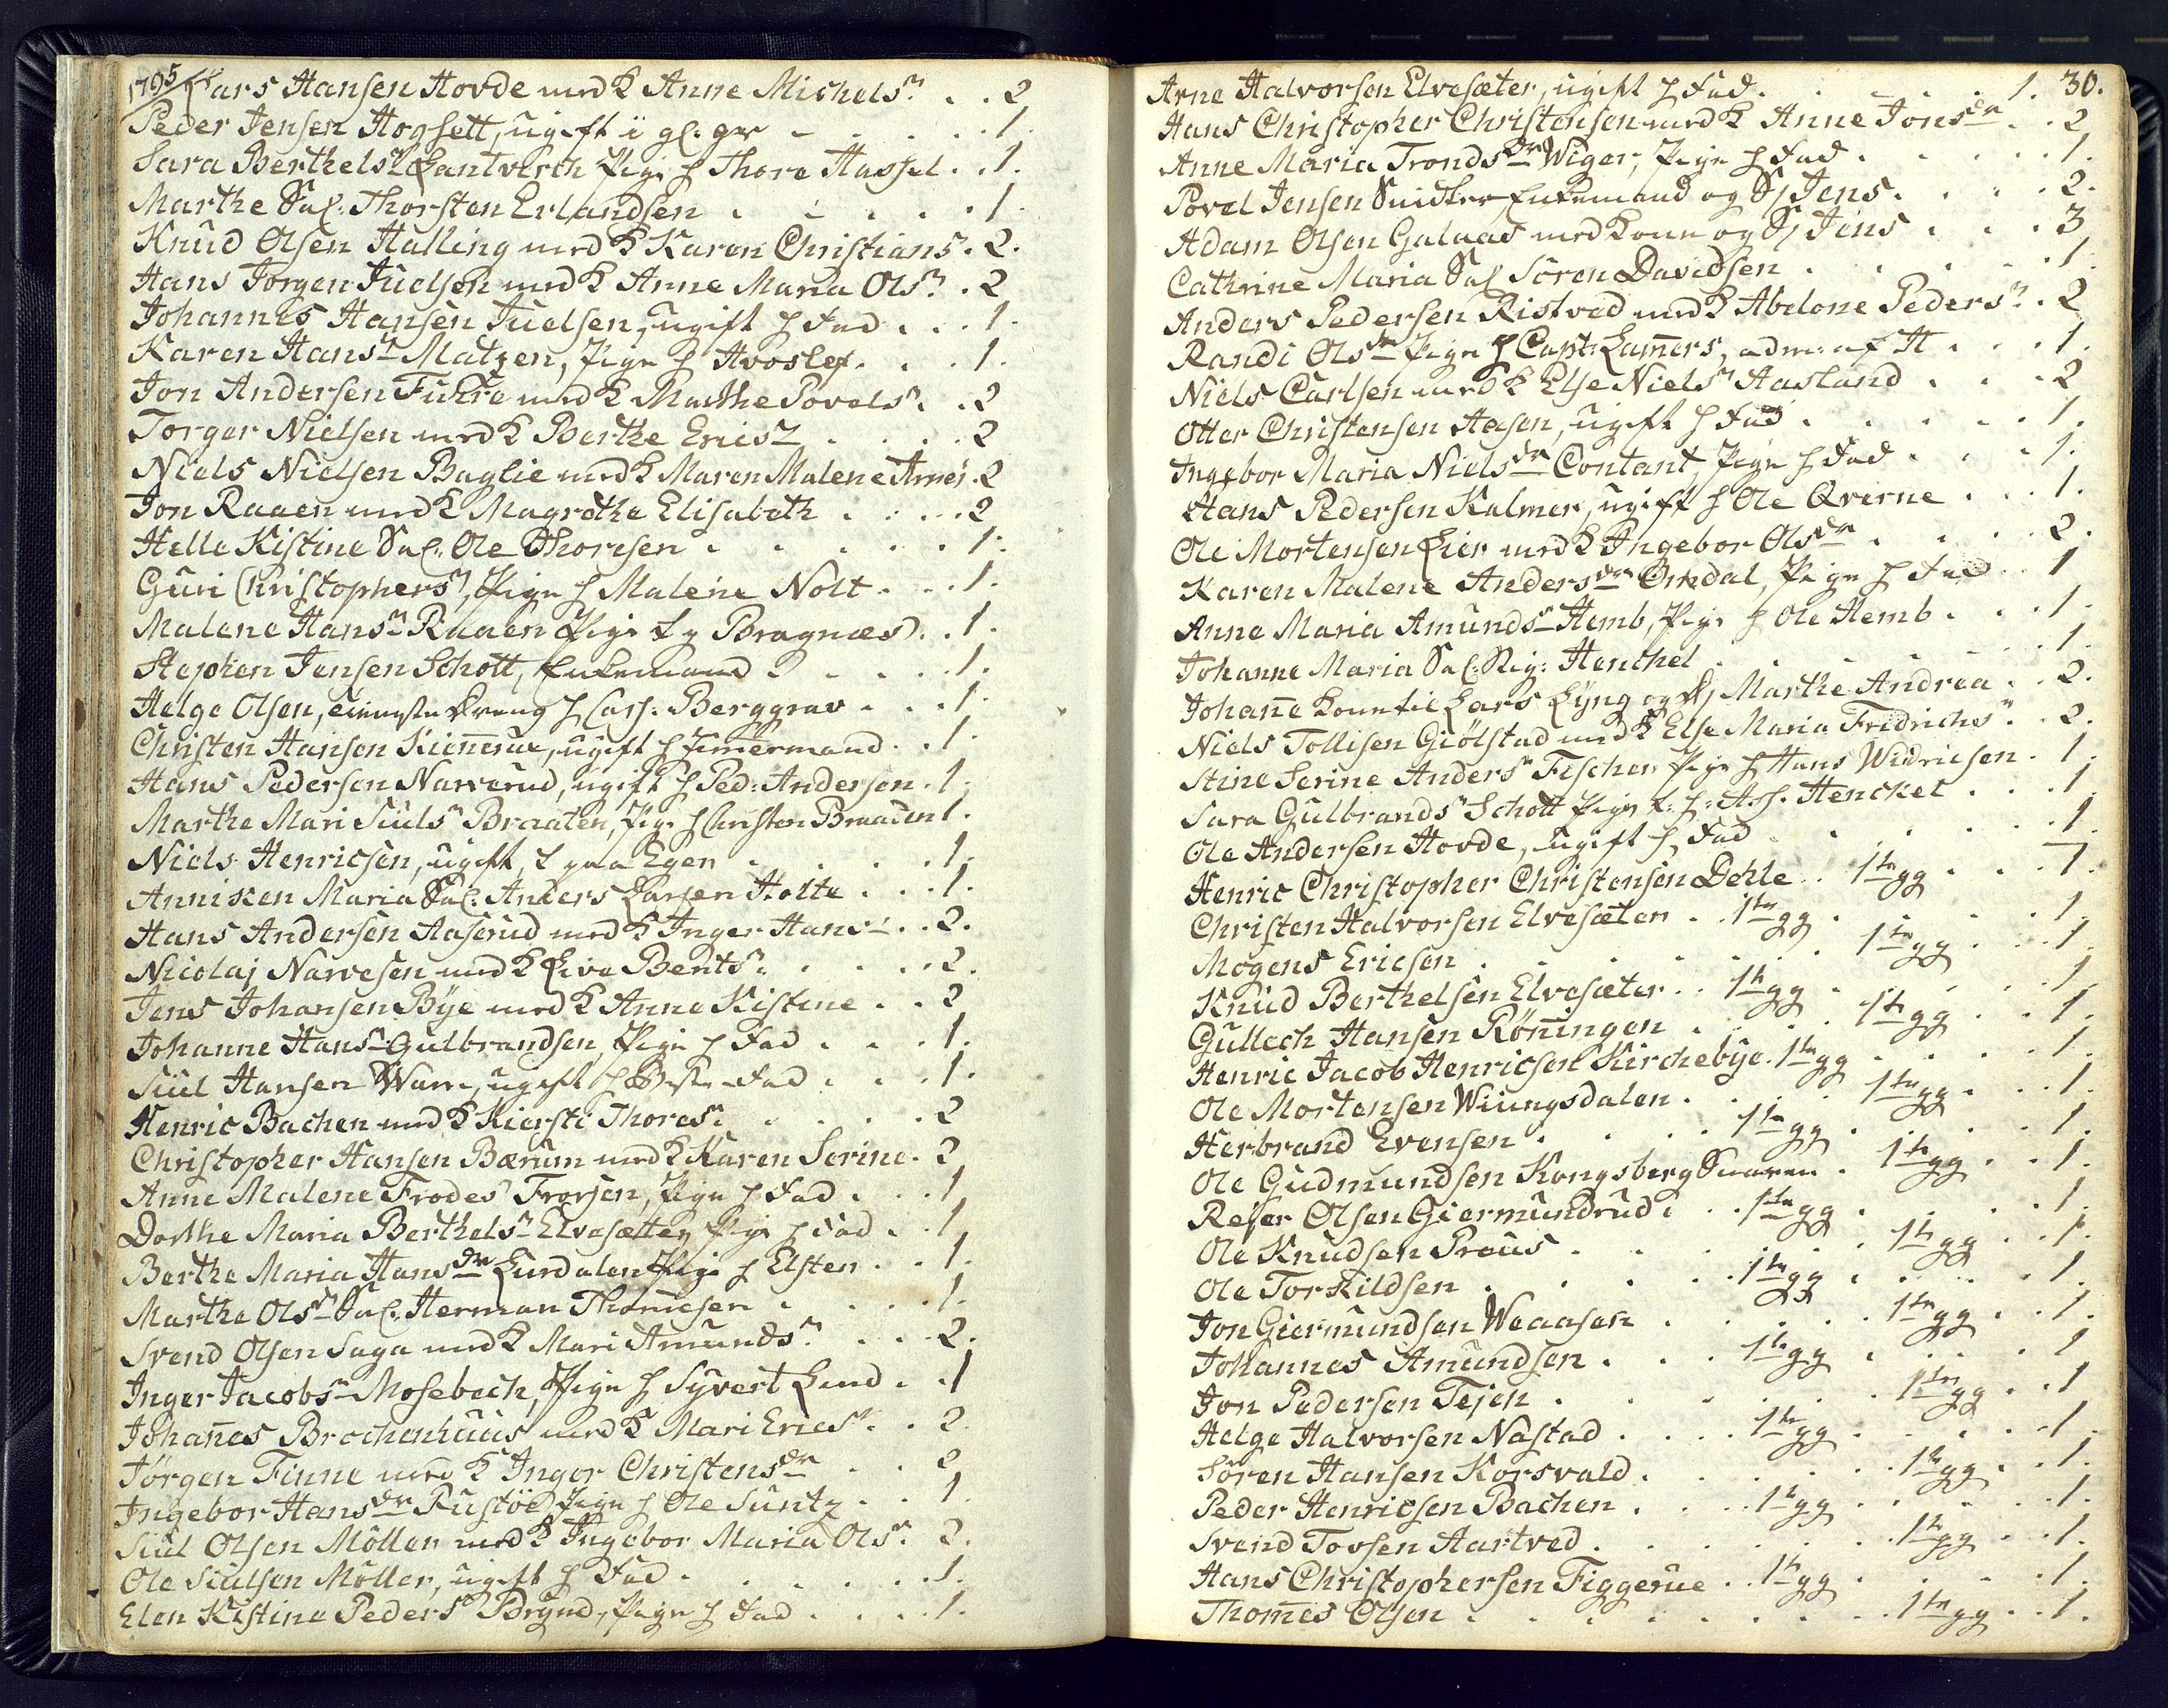 1795
Lars Hansen Hovde med K Anne Michelsn . . 2
Peder Jensen Hogsett, ugift i gl. gr . . 1.
Sara Berthelsn Lantverch Pige h Thore Hassel . . 1.
Marthe Sal: Thorsten Erlandsen . . . . . 1.
Knud Olsen Halling med K Karen Christiansn . 2.
Hans Jorgen Juelsen med K Anne Maria Olsn . 2
Johannes Hansen Juelsen, ugift h Fad . . . 1.
Karen Hansn Matzen, Pige h Hvoslef . . . 1.
Jon Andersen Fuhre med K Marthe Povelsn . . 2
Torger Nielsen med K Berthe Ericsn . . . . 2
Niels Nielsen Baglie med K Maren Malene Arnes . 2
Jon Raaen med K Magrethe Elisabeth . . . . 2
Helle Kistine Sal: Ole Thoresen . . . . . 1.
Guri Christophersn, Pige h Malene Nolt . . . 1.
Malene Hansn Raaen Pige t y Bragnæs . . 1.
Stephen Jensen Schott, Enkemand . . . . 1.
Helge Olsen, Dreng h Cash. Berggrav . . . 1.
Christen Hansen Kiennerue, ugift h Timermand . . 1.
Hans Pedersen Narverud, ugift h Ped: Andersen . 1.
Marthe Mari Siulsn Braaten, Pige h Christen Braaten 1.
Niels Henricsen, ugift, t paa Eger . . . . 1.
Annisken Maria Sal: Anders Larsen Holte . . . 1.
Hans Andersen Aaserud med K Inger Hansn . . 2.
Nicolaj Narvesen med K Live Bentsn . . . . 2.
Jens Johansen Bÿe med K Anne Kistine . . 2
Johanne Hansn Gulbrandsen, Pige h Fad . . . 1.
Siul Hansen Warn, ugift h Beste-Fad . . . 1.
Henric Bachen med K Kiersti Thoresn . . . . 2
Christopher Hansen Bærum med K Karen Serine . 2
Anne Malene Frodesn Frorsen, Pige h Fad . . . 1
Dorthe Maria Berthelsn Elvesætter Pige h Fad . . 1.
Berthe Maria Hansdr Lurdalen Pige h Elsten . . 1.
Marthe Olsn Sal: Herman Thomesen . . . . 1.
Svend Olsen Saga med K Mari Amundsn . . . 2.
Inger Jacobsn Mosebech, Pige h Syvert Lund . . 1
Johanes Brochenhuus med K Mari Ericsn . . 2
Jörgen Finne med K Inger Christensdr . . 2
Ingebor Hansdr Fustöe Pige h Ole Suntz . . 1.
Siul Olsen Möller med K Ingebor Maria Olsn . 2.
Ole Siulsen Möller, ugift h Fad . . . . . 1.
Elen Kistine Pedersn Brynd, Pige h Fad . . . . 1.
30.
Arne Halvorsen Elvesæter, ugift h Fad . . . . . 1.
Hans Christopher Christensen med K Anne Jonsdr . . 2
Anne Maria Trondsdr Wiger, Pige h Fad . . . . . 1.
Povel Jensen Snidker Enkemand og S: Jens . . . . 2.
Adam Olsen Galaas med Kone og S: Jens . . . 3
Cathrine Maria Sal Sören Davidsen . . . . . 1.
Anders Pedersen Ristved med K Abelone Pedersn . 2
Randi Olsdr Pige h Capt: Lamers, adm: af H . . . 1.
Niels Carlsen med K Else Nielsn Aasland . . . . 2
Otter Christensen Aasen, ugift h Fad . . . . . 1.
Ingebor Maria Nielsdr Contant, Pige h Fad . . . 1.
Hans Pedersen Kalmer, ugift h Ole Qverne . . . 1.
Ole Mortensen Lier med K Ingebor Olsdr . . . . 2.
Karen Malene Andersdr Omdal, Pige h Fad . . 1
Anne Maria Amundsn Hemb, Pige h Ole Hemb . . . 1.
Johanne Maria Sal: Sig: Henchel . . . . . 1.
Johane Kone til Lars Lÿng og D: Marthe Andrea . . 2.
Niels Tollisen Giölstad med K Else Maria Fredrichsn . . 2.
Stine Serine Andersn Fischer Pige h Hans Widricsen . 1.
Sara Gulbrandsn Schott Pige t. h: Ass. Henckel . . . 1
Ole Andersen Hovde, ugift h Fad . . . . . . 1.
Henric Christopher Christensen Dehle . 1te gg . . . 1.
Christen Halvorsen Elvesæter . . 1te gg . . . . 1.
Mogens Ericsen . . . . . . . 1te gg . . . 1.
Knud Berthelsen Elvesæter . . 1te gg . . . . 1.
Gullech Hansen Röningen . . . . 1te gg . . . 1.
Henric Jacob Henricsen Kirchebÿe . 1te gg . . . . 1.
Ole Mortensen Wiungsdalen . . . . 1te gg . . . 1.
Herbrand Evensen . . . . . 1te gg . . . . 1.
Ole Gudmundsen Kongsberg . 1te gg . . 1.
Rejer Olsen Giermundrud . . . 1te gg . . . . 1.
Ole Knudsen Præus . . . . . . 1te gg . . 1.
Ole Torkildsen . . . . . 1te gg . . . . 1.
Jon Giermundsen Weaasen . . . . . 1te gg . . 1.
Johannes Amundsen . . . 1te gg . . . . 1
Jon Pedersen Tejen . . . . . . 1te gg . . 1
Helge Halvorsen Nastad . . . . 1te gg . . . . 1.
Sören Hansen Korsvald . . . . . 1te gg . . . 1.
Peder Henricsen Bachen . . . . 1te gg . . . . 1.
Svend Tovsen Aartved . . . . . . 1te gg . . 1.
Hans Christophersen Figgerue . . 1te gg . . . . 1.
Thomes Olsen . . . . . . . . 1te gg . . 1.